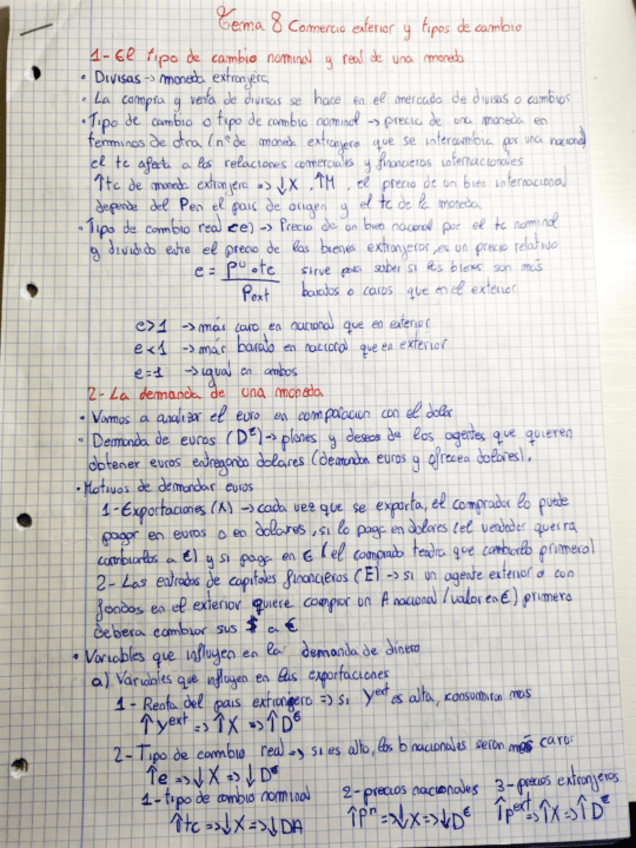 Tema 8 Comercio exterior y tipos de cambio
1- El tipo de cambio nominal y real de una moneda
• Divisas -> moneda extranjera
• La compra y venta de divisas se hace en el mercado de divisas o cambios
• Tipo de cambio o tipo de cambio nominal -> precio de una moneda en
terminos de otra (nº de moneda extranjera que se intercambia por una nacional
el tc afecta a las relaciones comerciales y financieras internacionales
↑tc de moneda extranjera => ↓X, ↑M, el precio de un bien internacional
depende del P en el pais de origen y el tc de la moneda
• Tipo de cambio real (e) -> Precio de un bien nacional por el tc nominal
y dividido entre el precio de los bienes extranjeros, es un precio relativo
e = Pᴺ · tc / Pext sirve para saber si los bienes son más
baratos o caros que en el exterior
e>1 -> más caro en nacional que en exterior
e<1 -> más barato en nacional que en exterior
e=1 -> igual en ambos
2- La demanda de una moneda
• Vamos a analizar el euro en comparacion con el dolar
• Demanda de euros (D€) -> planes y deseos de los agentes que quieren
obtener euros entregando dolares (demandan euros y ofrecen dolares).
• Motivos de demandar euros
1- Exportaciones (X) -> cada vez que se exporta, el comprador lo puede
pagar en euros o en dolares, si lo paga en dolares (el vendedor querra
cambiarlos a €) y si paga en € (el comprado tendra que cambiarlo primero)
2- Las entradas de capitales financieros (E) -> si un agente exterior o con
fondos en el exterior quiere comprar un A nacional (valor en €) primero
debera cambiar sus $ a €
• Variables que influyen en la demanda de dinero
a) Variables que influyen en las exportaciones
1- Renta del pais extrangero => si Yext es alta, consumiran mas
↑Yext => ↑X => ↑D€
2- Tipo de cambio real => si es alto, los b nacionales seran mas caro:
↑e => ↓X => ↓D€
1- tipo de cambio nominal 2- precios nacionales 3- precios extranjeros
↑tc => ↓X => ↓DA ↑Pⁿ => ↓X => ↓D€ ↑Pext => ↑X => ↑D€